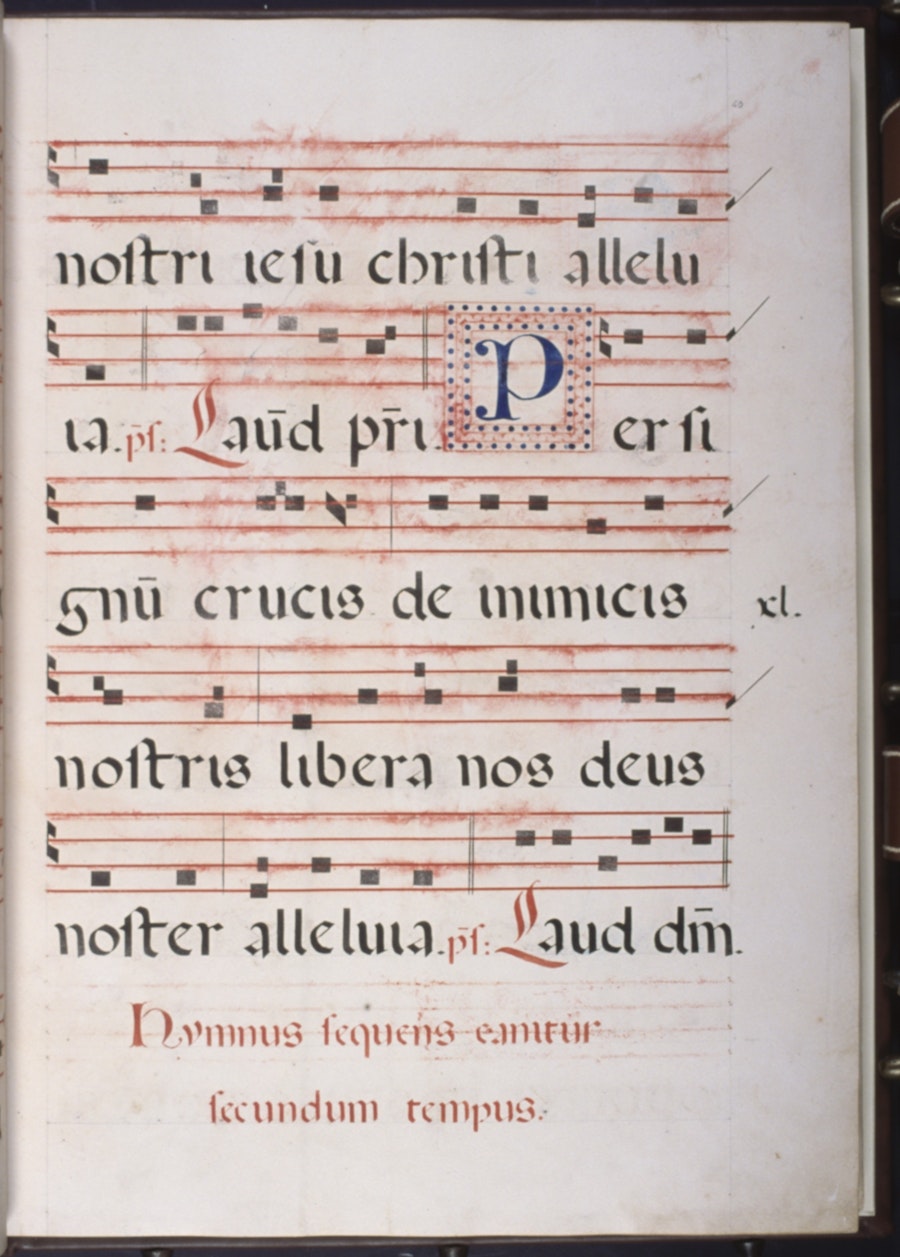 noſtri ieſu chriſti allelu
ia. p̄ſ: Laūd pr̄i. P er ſi
gnū crucis de inimicis xl.
noſtris libera nos deus
noſter alleluia. p̄ſ: Laud dm̄.
Hymnus ſequens
ſecundum tempus.